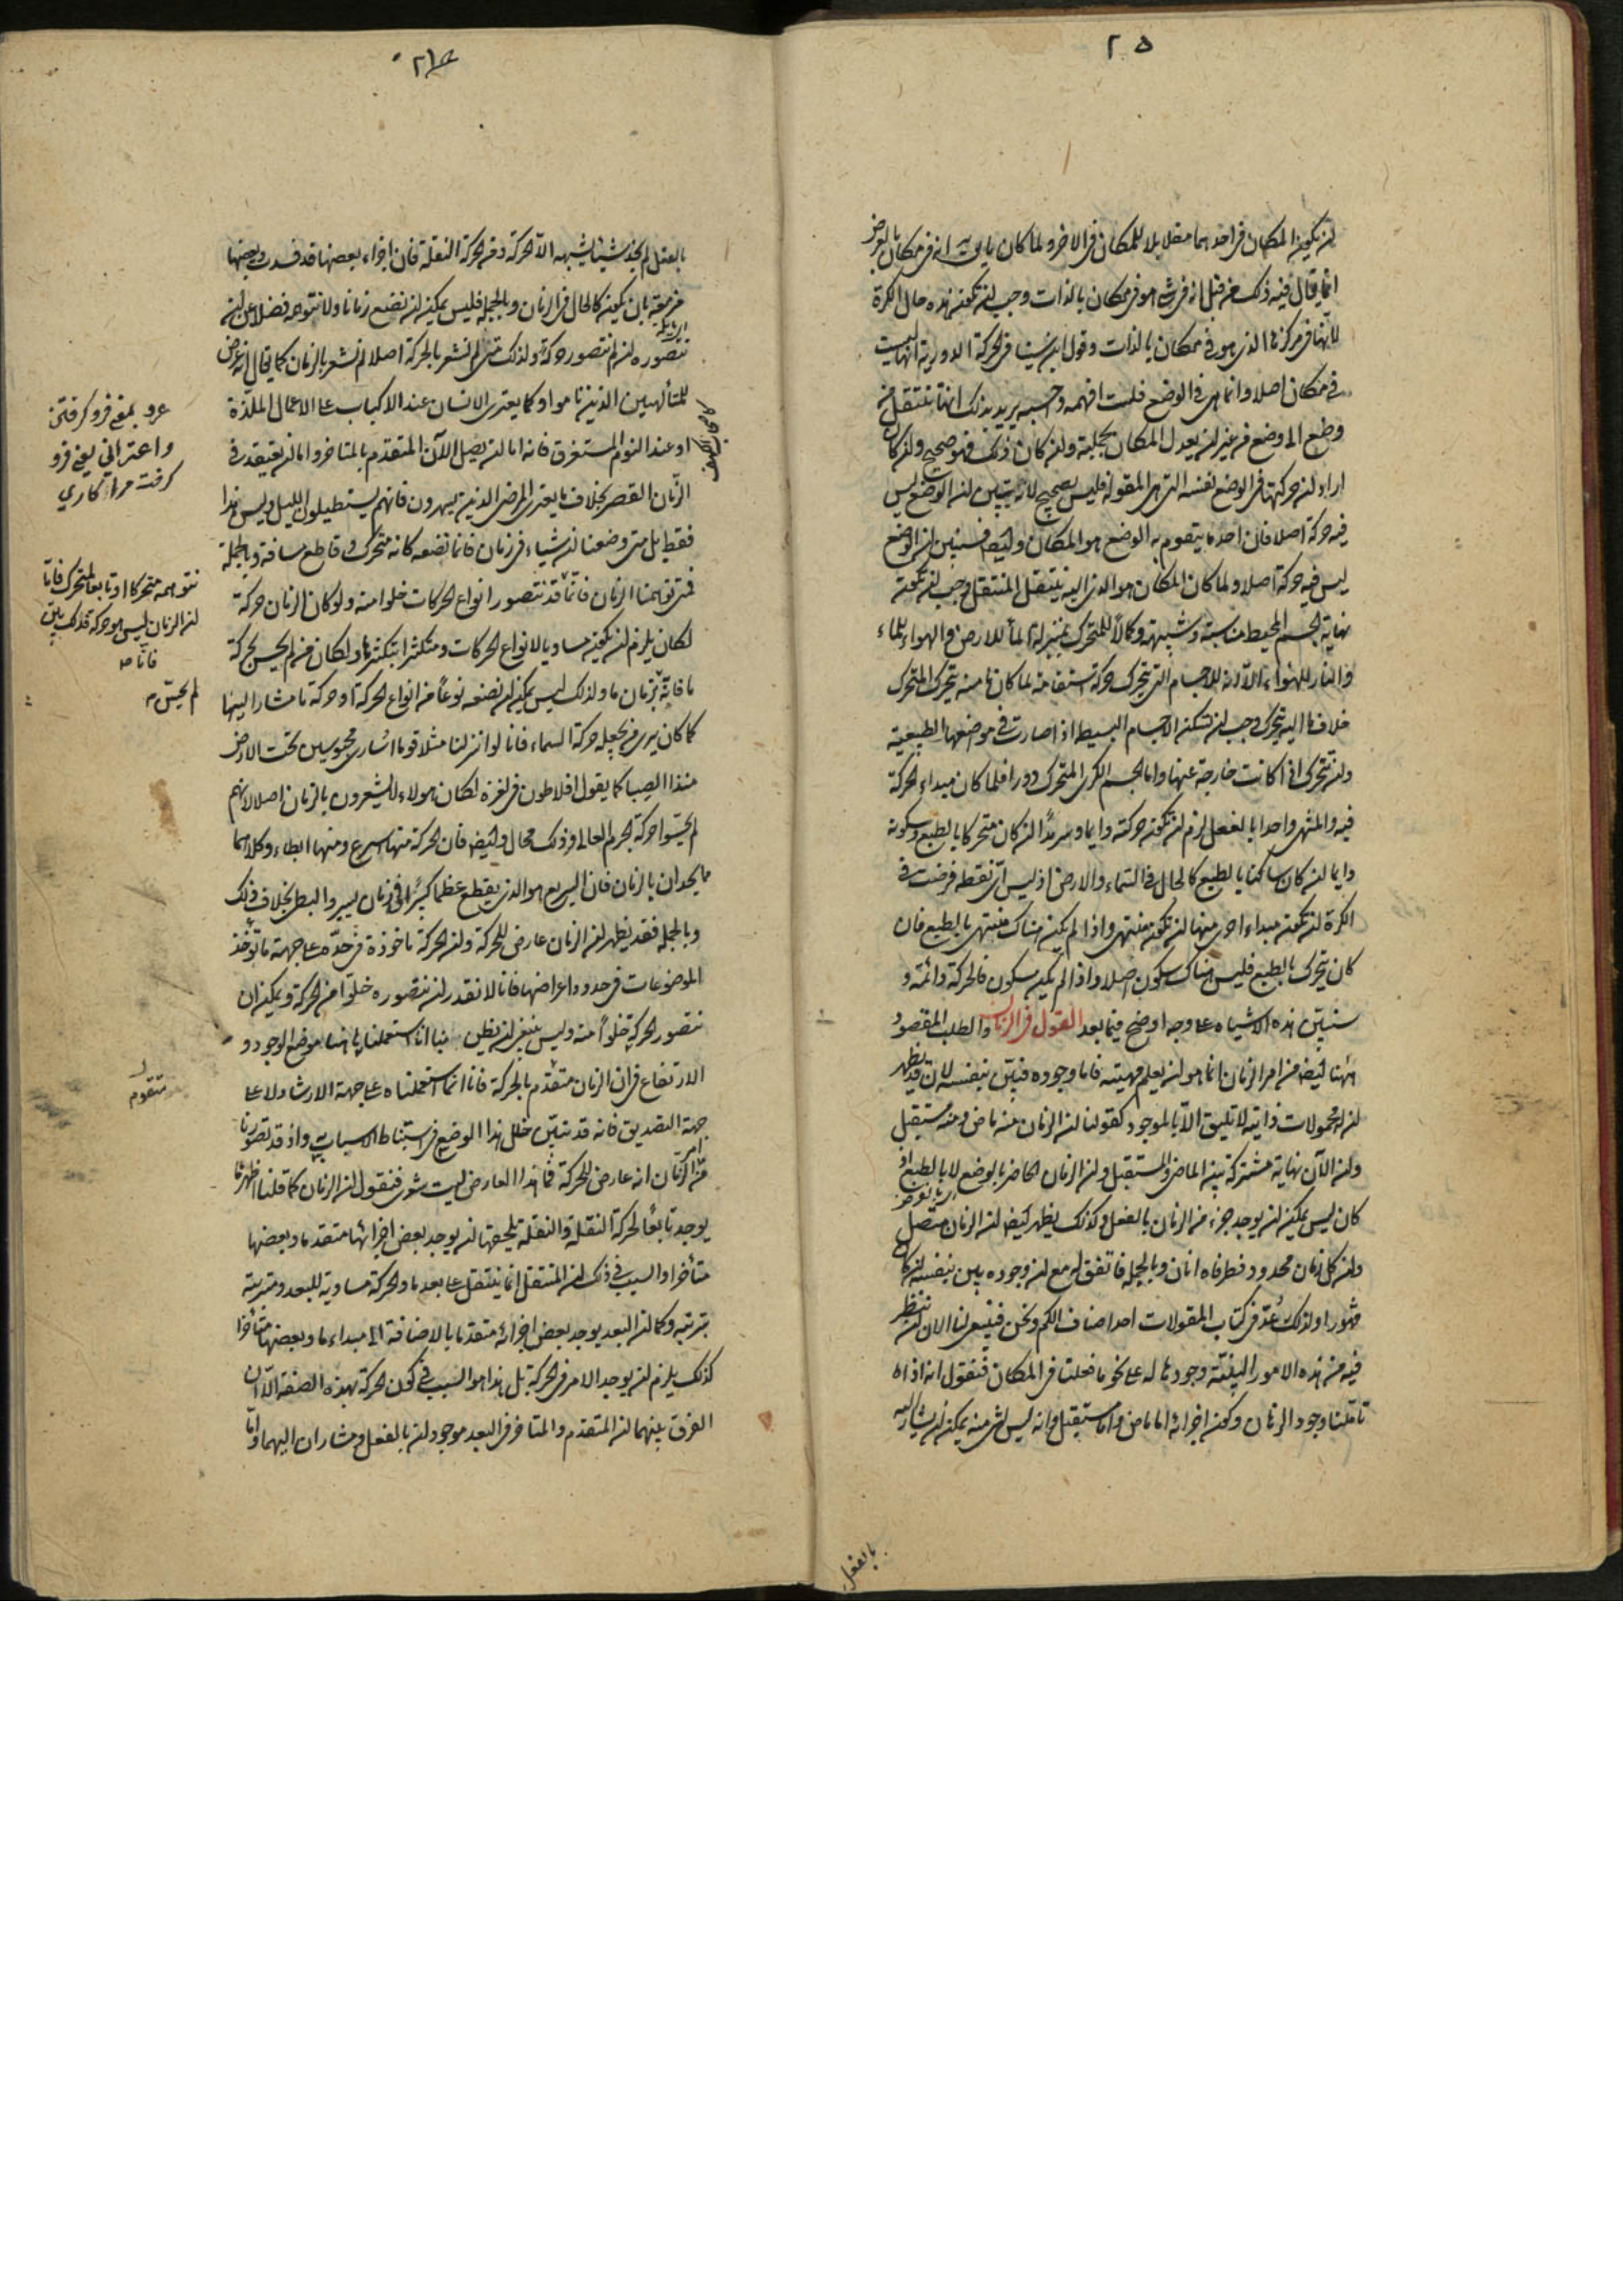 ٢٥
ان يكون المكان فى احدهما مقابلا للمكان فى الاخر ولما كان ما يقال انه فى مكان بالعرض
انما يقال فيه ذلك من قبل انه فى شى هو فى مكان بالذات وجب ان تكون هذه حال الكرة
لانها فى مركزها الذى هو فى مكان بالذات وقول ابن سينا فى الحركة الدورية انها ليست
فى مكان اصلا وانما هى فى الوضع فلست افهمه واحسبه يريد بذلك انها تنتقل من
وضع الى وضع من غير ان يبدل المكان بجملته وان كان ذلك فهو صحيح وان كان
اراد ان حركتها فى الوضع نفسه التى هى المقولة فليس بصحيح لانه تبين ان الوضع ليس
فيه حركة اصلا فان احد ما يتقوم به الوضع هو المكان وايضا فسنبين ان الوضع
ليس فيه حركة اصلا ولما كان المكان هو الذى اليه ينتقل المنتقل وجب ان تكون
نهاية الجسم المحيط مناسبة وشبيهة وكمالا للمتحرك بمنزلة الماء للارض والهواء للماء
والنار للهواء الا ان هذه الاجسام التى تتحرك حركة استقامة لما كان ما منه يتحرك المتحرك
خلاف ما اليه يتحرك وجب ان تسكن الاجسام البسيطة اذا صارت فى موضعها الطبيعية
وان تتحرك اذا كانت خارجة عنها واما الجسم الكرى المتحرك دورا فلما كان مبداء الحركة
فيه والمنتهى واحدا بالفعل لزم ان تكون حركته دايما وسرمدا ان كان متحركا بالطبع وسكونه
دايما ان كان ساكنا بالطبع كالحال فى السماء والارض اذ ليس اى نقطة فرضت فى
الكرة ان تكون مبداء احرى منها ان تكون منتهى واذا لم يكن هناك منتهى بالطبع فان
كان يتحرك بالطبع فليس هناك سكون اصلا واذا لم يكن سكون فالحركة دائمة و
سنبين هذه الاشياء على وجه اوضح فيما بعد القول فى الزمان والطلب المقصود
ههنا ايضا من امر الزمان انما هو ان يعلم مهيته فاما وجوده فبين بنفسه لان قد يظهر
ان له محمولات ذاتية لا تليق الا بالموجود كقولنا ان الزمان منه ماض ومنه مستقبل
وان الآن نهاية مشتركة بين الماضى والمستقبل وان الزمان الحاضر بالوضع لا بالطبع اذ
كان ليس يمكن ان يوجد جزء من الزمان بالفعل وكذلك يظهر ايضا ان الزمان متصل
وان كل زمان محدود فطرفاه انان وبالجملة فاتفق له مع ان وجوده بين بنفسه ان كان
مشهورا ولذلك عد فى كتاب المقولات احد اصناف الكم ونحن فينبغى لنا الان ان ننظر
فيه من هذه الامور البينة وجودها له على نحو ما فعلنا فى المكان فنقول انه اذا
تاملنا وجود الزمان وكون اجزائه اما ماض واما مستقبل وانه ليس شى منه يمكن ان يشار اليه
بالفعل
بالفعل لم نجد شيئا يشبهه الا الحركة ومن الحركة النقلة فان اجزاء بعضها قد فسدت وبعضها
مزمعة بان يكون كالحال فى الزمان وبالجملة فليس يمكن ان نضع زمانا ولا نتوهمه فضلا عن ان
نتصوره ان لم نتصور حركة ولذلك متى لم نشعر بالحركة اصلا لم نشعر بالزمان كما يقال انه عرض
للمتألهين الذين ناموا وكما يعترى الانسان عند الاكباب على الاعمال الملذة
او عند النوم المستغرق فانه اما ان يصل الآن المتقدم بالمتاخر واما ان يعتقد فى
الزمان القصر بخلاف ما يعترى المرضى الذين يسهرون فانهم يستطيلون الليل وليس هذا
فقط بل متى وضعنا ان شياء فى زمان فانما نضعه كانه متحرك وقاطع مسافة وبالجملة
فمتى توهمنا الزمان فانما قد نتصور انواع الحركات خلوا منه ولو كان الزمان حركة
لكان يلزم ان يكون مساويا لانواع الحركات ومتكثرا بتكثرها ولكان من لم يحس بحركة
ما فاته زمان ما ولذلك ليس يمكن ان نضعه نوعا من انواع الحركة او حركة ما مشارا اليها
كما كان يرى من يجعله حركة السماء فانا لو انزلنا مثلا قوما اسارى محبوسين تحت الارض
منذ الصبا كما يقول افلاطون فى لغزه لكان هولاء لا يشعرون بالزمان اصلا لانهم
لم يحسوا حركة الجرم العالى وذلك محال وايضا فان الحركة منها اسرع ومنها ابطاء وكلاهما
ما يحدان بالزمان فان السريع هو الذى يقطع عظما كبيرا فى زمان يسير والبطى بخلاف ذلك
وبالجملة فقد يظهر ان الزمان عارض للحركة وان الحركة ماخوذة فى حده على جهة ما تؤخذ
الموضوعات فى حدود اعراضها فانا لا نقدر ان نتصوره خلوا من الحركة ويمكن ان
نتصور الحركة خلوا منه وليس ينبغى ان يظن بنا انا استعملنا ههنا موضع الوجود و
الارتفاع فى ان الزمان متقدم بالحركة فانا انما استعملناه على جهة الارشاد لا على
جهة التصديق فانه قد تبين خلل هذا الوضع فى استنباط الاسباب واذ قد تصورنا
من الزمان انه عارض للحركة فما هذا العارض ليت شعرى فنقول ان الزمان كما قلنا اظهر ما
يوجد تابعا لحركة النقلة والنقلة يلحقها ان يوجد بعض اجزائها متقدما وبعضها
متأخرا والسبب فى ذلك ان المنتقل انما ينتقل على بعد ما والحركة مساوية للبعد ومترتبة
بترتيبه وكما ان البعد يوجد بعض اجزائه متقدما بالاضافة الى مبداء ما وبعضها متأخرا
كذلك يلزم ان يوجد الامر فى الحركة بل هذا هو السبب فى كون الحركة بهذه الصفة الا ان
الفرق بينهما ان المتقدم والمتاخر فى البعد موجودان بالفعل ومشاران اليهما واما
عرو بمعنى فرو گرفتن
واعترانى يعنى فرو
گرفت مرا كارى
نتوهمه متحركا او تابعا لمتحرك فاما
ان الزمان ليس هو حركة فذلك بين
فانا صـ
لم يحس م
متقوم